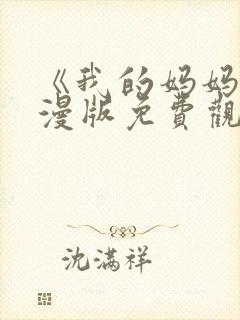 《我的妈妈
漫版免費觀
沈满祥